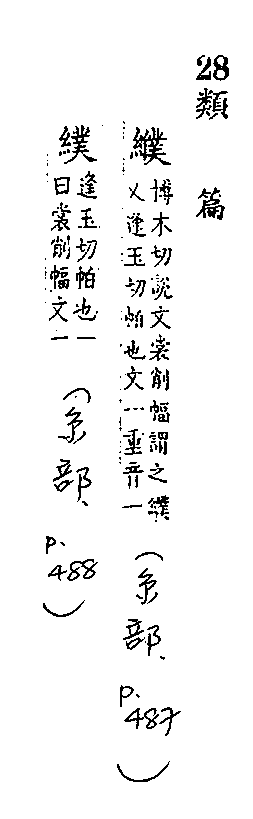 28類篇
纀 博木切說文裳削幅謂之纀
又逢玉切帕也文一重音一
(糸部、p.487)
襆 逢玉切帕也一
曰裳削幅文一
(糸部、p.488)